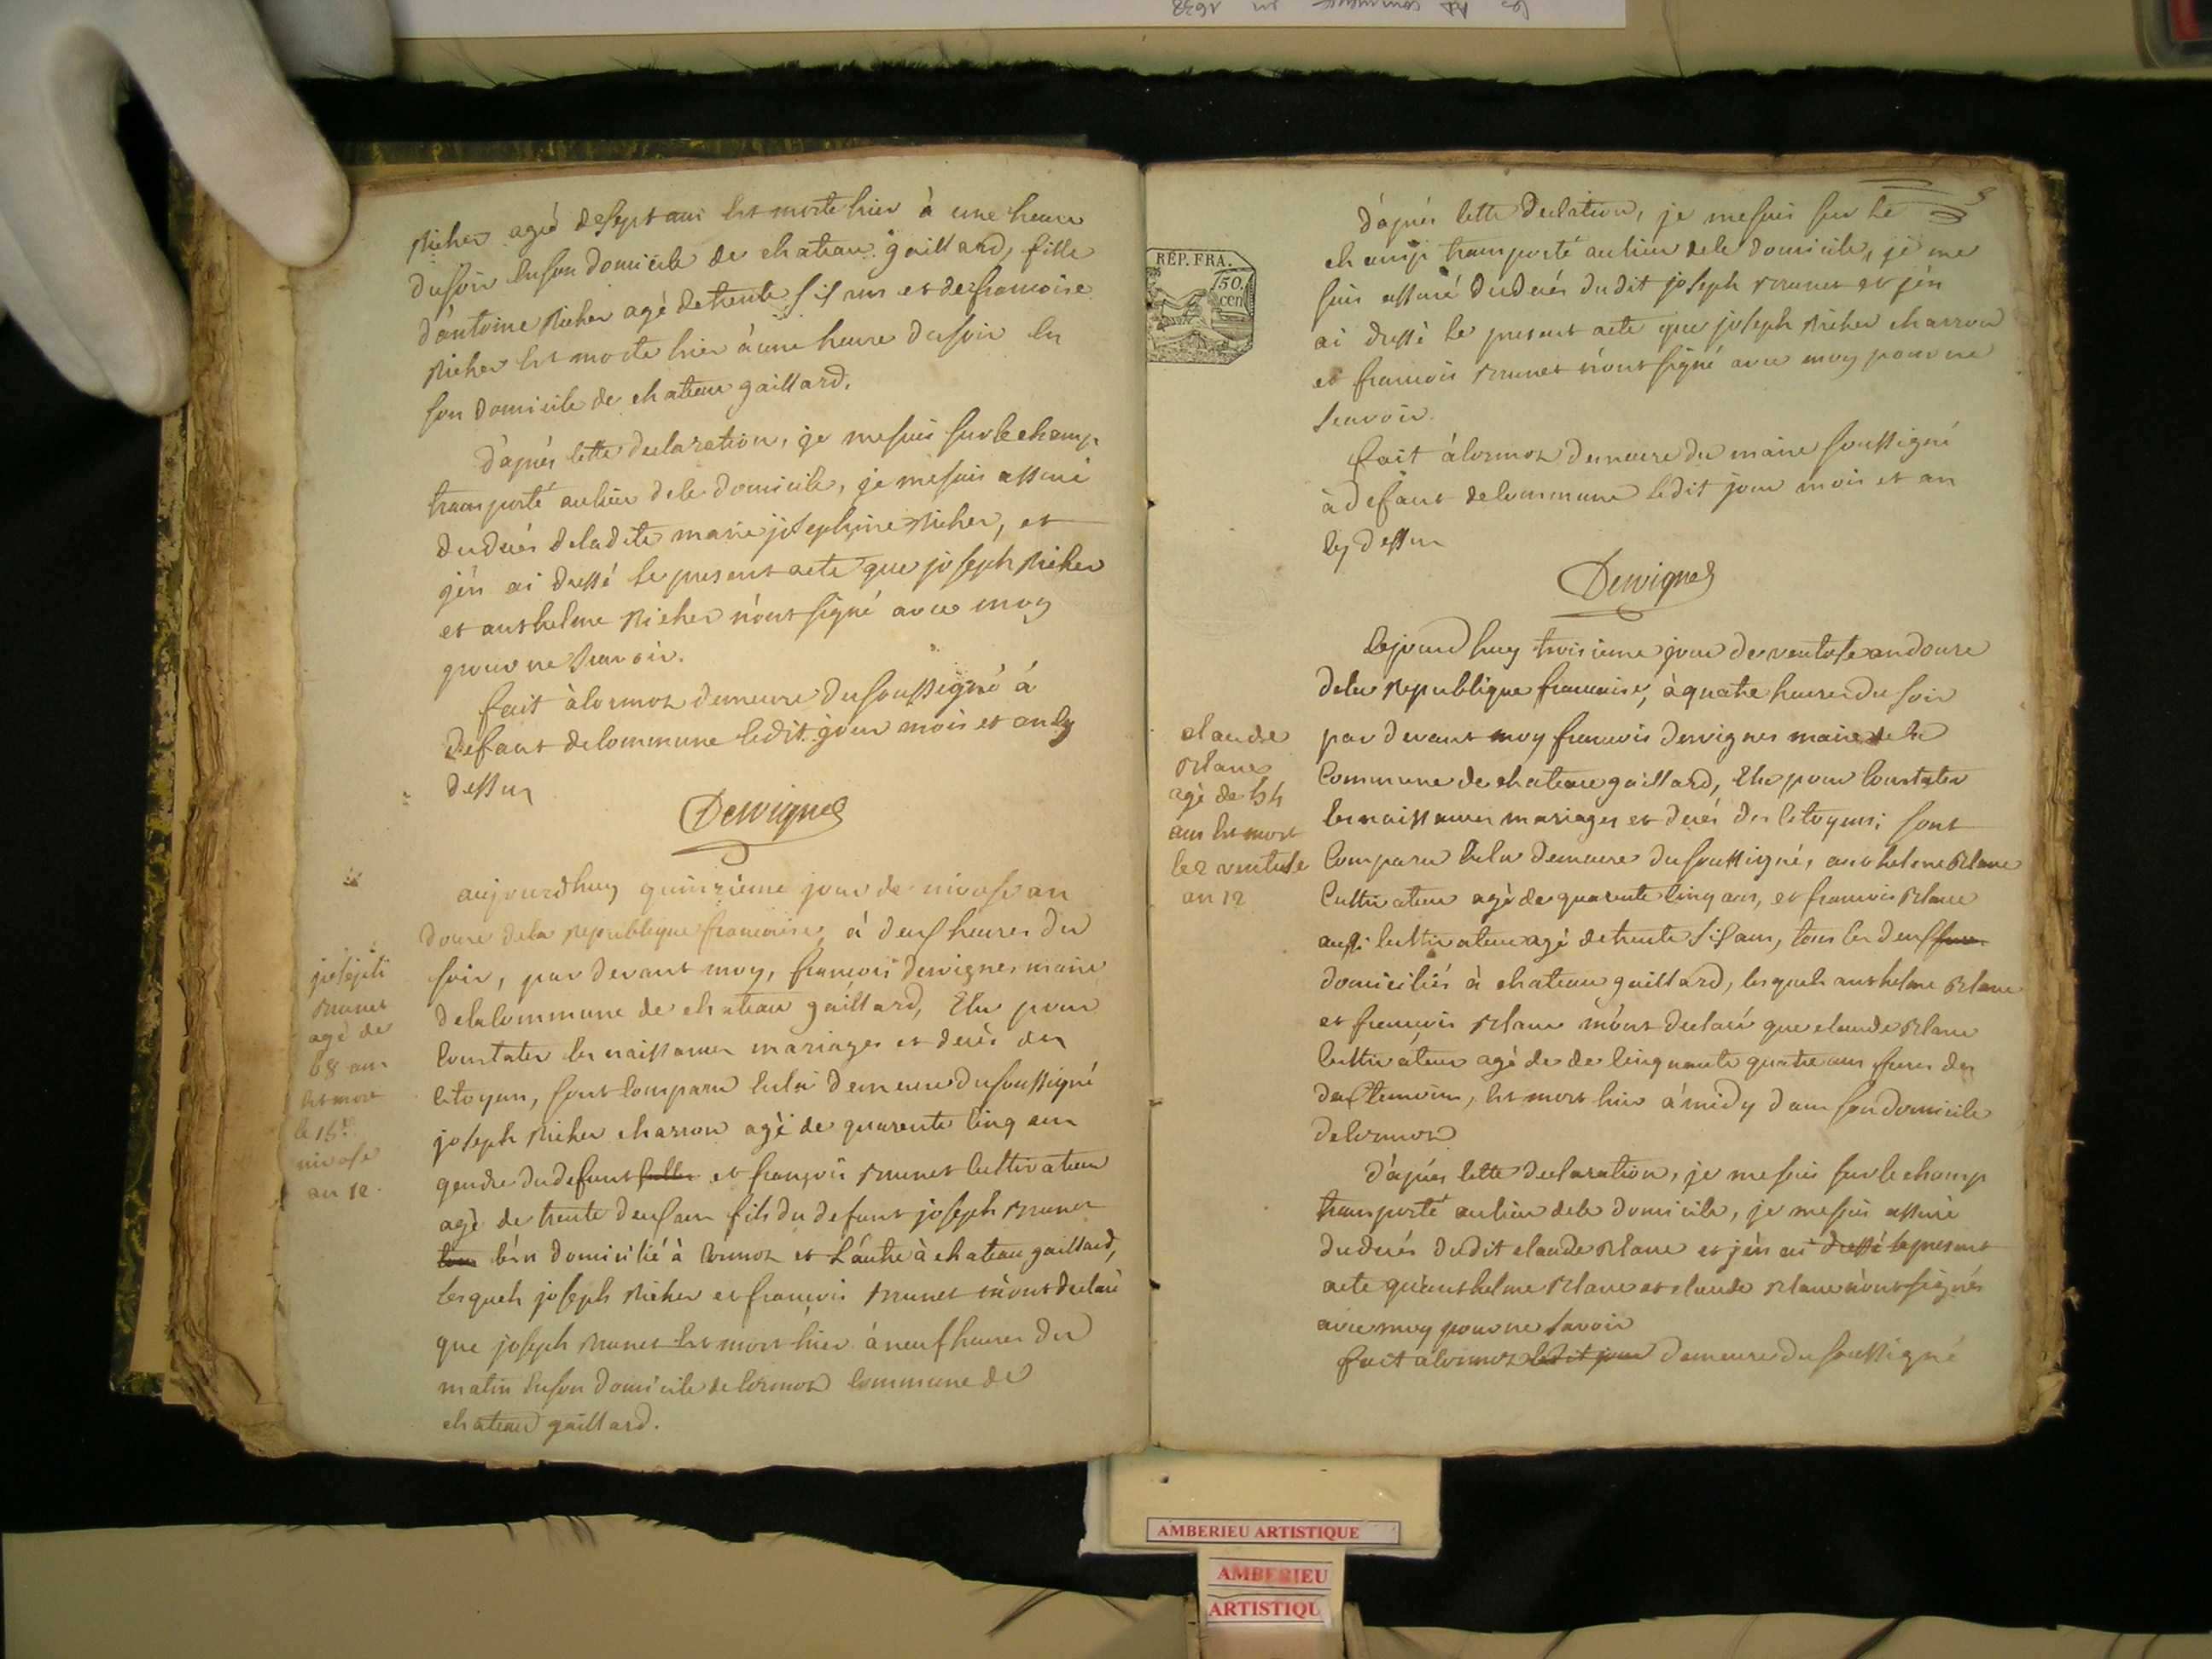 Richer agé de sept ans est morte hier à une heure
du soir en son domicile de chateau gaillard, fille
d'antoine Richer agé de trente six ans et de francoise
Richer est morte hier à une heure du soir en
son domicile de chateau gaillard.
d'aprés cette declaration, je me suis sur le champ
transporté au lieu de le domicile, je me suis assuré
du decés de ladite marie josephine Richer, et
j'en ai dressé le present acte que joseph Richer
et anthelme Richer n'ont signé avec moy
pour ne scavoir.
fait à cormoz demeure du soussigné à
defaut de commune ledit jour mois et an cy
dessus
Dervignes
aujourdhuy quinzieme jour de nivose an
douze de la Republique francaise, à deux heures du
soir, par devant moy, francois dervignes maire
de la commune de chateau gaillard, Elu pour
constater les naissances mariages et decès des
citoyens, sont comparu en la demeure du soussigné
joseph Richer charron agè de quarente cinq ans
gendre du defunt et françois Brunet cultivateur
agè de trente deux ans fils du defunt joseph Brunet
l'un domicilié à Cormoz et L'autre à chateau gaillard,
lesquels joseph Richer et françois Brunet m'ont declaré
que joseph Brunet est mort hier à neuf heures du
matin en son domicile de cormoz commune de
chateau gaillard.
joseph
Brunet
agé de
68 ans
est mort
le 15e
nivose
an 12.
d'aprés cette declation, je me suis sur le
champ transporté au lieu de le domicile, je me
suis assuré du decés du dit joseph Brunet et j'en
ai dressé le present acte que joseph Richer charron
et francois Brunet n'ont signé avec moy pour ne
scavoir.
fait à cormoz demeure du maire soussigné
à defaut de commune ledit jour mois et an
cy dessus
Dervignes
RÉP. FRA.
50.
cen
Cejourd huy troisieme jour de ventose an douze
de la Republique francaise, à quatre heures du soir
par devant moy francois dervignes maire de la
Commune de chateau gaillard, Elu pour Constater
les naissances mariages et decés des Citoyens; sont
Comparu en la demeure du soussigné, anthelme Blanc
Cultivateur agè de quarente cinq ans, et francois Blanc
aussi cultivateur agé de trente six ans, tous les deux
domiciliés à chateau gaillard, lesquels anthelme Blanc
et françois Blanc m'ont declaré que claude Blanc
cultivateur agè de de cinquante quatre ans frere des
deux temoins, est mort hier à midy dans son domicile
de cormoz
d'aprés cette declaration, je me suis sur le champ
transporté au lieu de le domicile, je me suis assuré
du decés dudit claude Blanc et j'en ai dressé le present
acte qu'anthelme Blanc et claude Blanc n'ont signés
avec moy pour ne savoir
fait à cormoz ledit jour demeure du soussigné
claude
Blanc
agè de 54
ans est mort
le 2 ventose
an 12
AMBERIEU ARTISTIQUE
AMBERIEU
ARTISTIQU